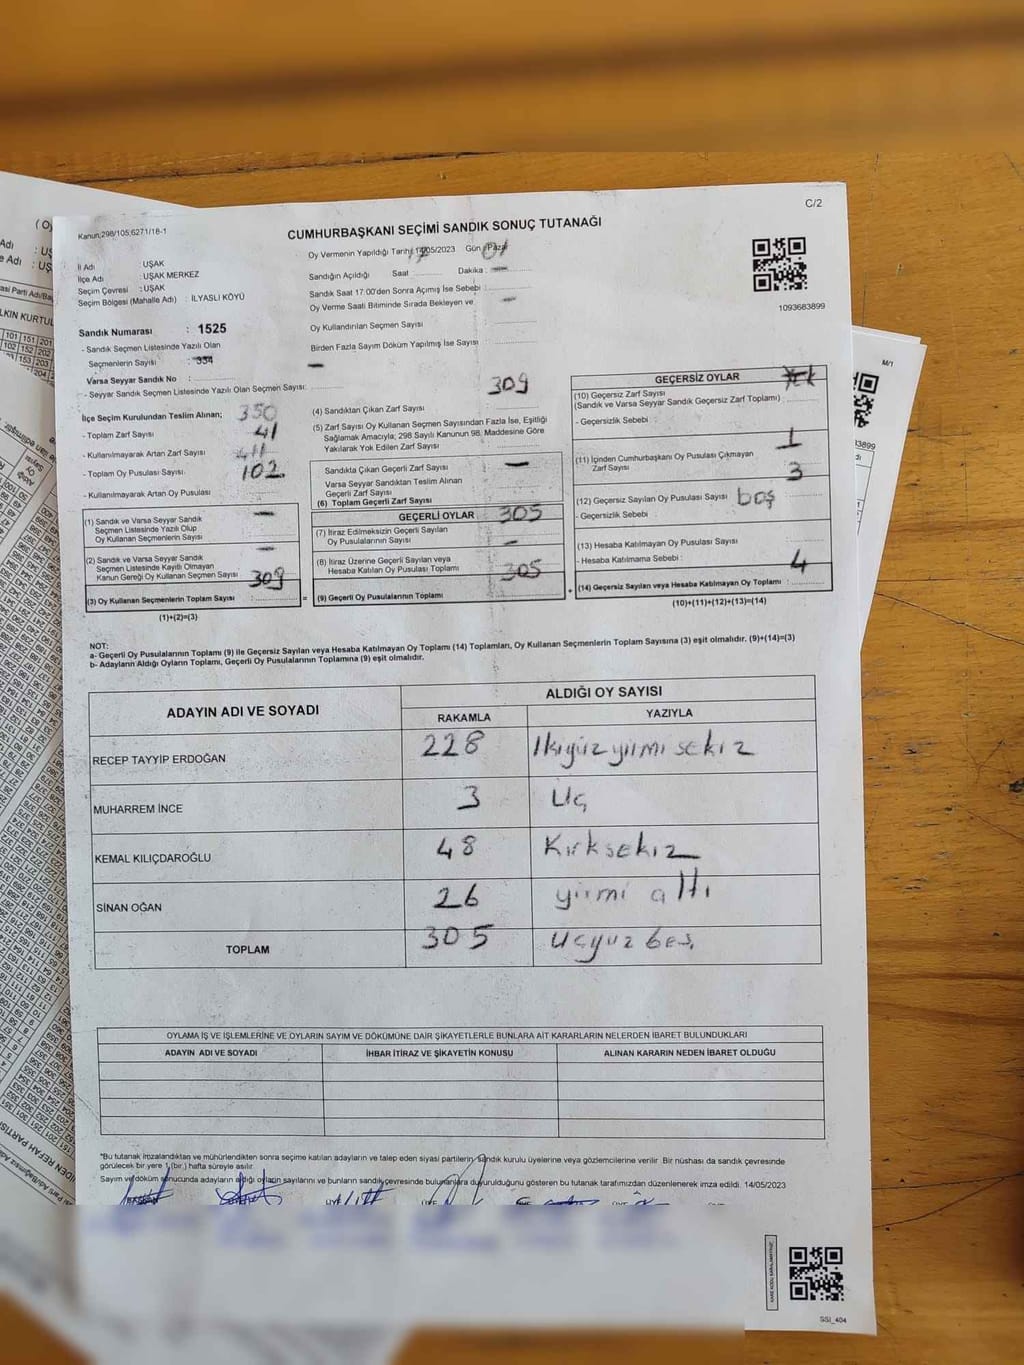 C/2
Kanun;298/105;6271/18-1
CUMHURBAŞKANI SEÇİMİ SANDIK SONUÇ TUTANAĞI
İl Adı : UŞAK
İlçe Adı : UŞAK MERKEZ
Seçim Çevresi : UŞAK
Seçim Bölgesi (Mahalle Adı) : İLYASLI KÖYÜ
Sandık Numarası : 1525
- Sandık Seçmen Listesinde Yazılı Olan
Seçmenlerin Sayısı : 334
Varsa Seyyar Sandık No :
- Seyyar Sandık Seçmen Listesinde Yazılı Olan Seçmen Sayısı:
Oy Vermenin Yapıldığı Tarih 05/2023 Gün Pazar
Sandığın Açıldığı Saat Dakika :
Sandık Saat 17.00'den Sonra Açımış İse Sebebi :
Oy Verme Saati Bitiminde Sırada Bekleyen ve
Oy Kullandırılan Seçmen Sayısı
Birden Fazla Sayım Döküm Yapılmış İse Sayısı
1093683899
İlçe Seçim Kurulundan Teslim Alınan; 350
- Toplam Zarf Sayısı 41
- Kullanılmayarak Artan Zarf Sayısı 411
- Toplam Oy Pusulası Sayısı 102
- Kullanılmayarak Artan Oy Pusulası
(1) Sandık ve Varsa Seyyar Sandık
Seçmen Listesinde Yazılı Olup
Oy Kullanan Seçmenlerin Sayısı
(2) Sandık ve Varsa Seyyar Sandık
Seçmen Listesinde Kayıtlı Olmayan
Kanun Gereği Oy Kullanan Seçmen Sayısı 309
(3) Oy Kullanan Seçmenlerin Toplam Sayısı :
(1)+(2)=(3)
309
(4) Sandıktan Çıkan Zarf Sayısı
(5) Zarf Sayısı Oy Kullanan Seçmen Sayısından Fazla İse, Eşitliği
Sağlamak Amacıyla; 298 Sayılı Kanunun 98. Maddesine Göre
Yakılarak Yok Edilen Zarf Sayısı
Sandıkta Çıkan Geçerli Zarf Sayısı
Varsa Seyyar Sandıktan Teslim Alınan
Geçerli Zarf Sayısı
(6) Toplam Geçerli Zarf Sayısı
GEÇERLİ OYLAR 305
(7) İtiraz Edilmeksizin Geçerli Sayılan
Oy Pusulasının Sayısı
(8) İtiraz Üzerine Geçerli Sayılan veya
Hesaba Katılan Oy Pusulası Toplamı 305
(9) Geçerli Oy Pusulalarının Toplamı
GEÇERSİZ OYLAR
(10) Geçersiz Zarf Sayısı
(Sandık ve Varsa Seyyar Sandık Geçersiz Zarf Toplamı)
- Geçersizlik Sebebi : 1
(11) İçinden Cumhurbaşkanı Oy Pusulası Çıkmayan
Zarf Sayısı 3
(12) Geçersiz Sayılan Oy Pusulası Sayısı boş
- Geçersizlik Sebebi :
(13) Hesaba Katılmayan Oy Pusulası Sayısı
- Hesaba Katılmama Sebebi : 4
(14) Geçersiz Sayılan veya Hesaba Katılmayan Oy Toplamı :
(10)+(11)+(12)+(13)=(14)
NOT:
a- Geçerli Oy Pusulalarının Toplamı (9) ile Geçersiz Sayılan veya Hesaba Katılmayan Oy Toplamı (14) Toplamları, Oy Kullanan Seçmenlerin Toplam Sayısına (3) eşit olmalıdır. (9)+(14)=(3)
b- Adayların Aldığı Oyların Toplamı, Geçerli Oy Pusulalarının Toplamına (9) eşit olmalıdır.
ADAYIN ADI VE SOYADI ALDIĞI OY SAYISI
RAKAMLA YAZIYLA
RECEP TAYYİP ERDOĞAN 228 Ikiyüz yirmi sekiz
MUHARREM İNCE 3 Uç
KEMAL KILIÇDAROĞLU 48 Kırksekiz
SİNAN OĞAN 26 yirmi altı
TOPLAM 305 Uçyüz beş
OYLAMA İŞ VE İŞLEMLERİNE VE OYLARIN SAYIM VE DÖKÜMÜNE DAİR ŞİKAYETLERLE BUNLARA AİT KARARLARIN NELERDEN İBARET BULUNDUKLARI
ADAYIN ADI VE SOYADI İHBAR İTİRAZ VE ŞİKAYETİN KONUSU ALINAN KARARIN NEDEN İBARET OLDUĞU
*Bu tutanak imzalandıktan ve mühürlendikten sonra seçime katılan adayların ve talep eden siyasi partilerin, sandık kurulu üyelerine veya gözlemcilerine verilir. Bir nüshası da sandık çevresinde
görülecek bir yere 1 (bir) hafta süreyle asılır.
Sayım ve döküm sonucunda adayların aldığı oyların sayılarını ve bunların sandık çevresinde bulunanlara duyurulduğunu gösteren bu tutanak tarafımızdan düzenlenerek imza edildi. 14/05/2023
SSİ_404
M/1